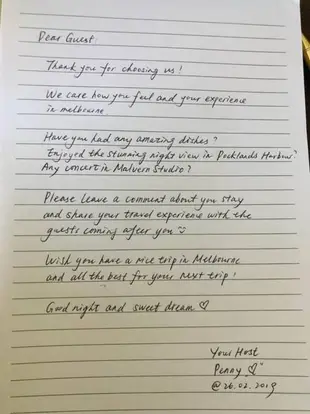 Dear Guest:
Thank you for choosing us!
We care how you feel and your experience
in melbourne.
Have you had any amazing dishes?
Enjoyed the stunning night view in Docklands Harbour?
Any concert in Malvern Studio?
Please leave a comment about you stay
and share your travel experience with the
guests coming after you
Wish you have a nice trip in Melbourne
and all the best for your next trip!
Good night and sweet dream ♡
Your Host
Penny ♡
@26.02.2019